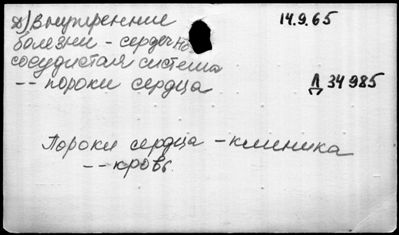 д) Внутренние 14.9.65
болезни - сердечно
сосудистая система
-- пороки сердца Д 34985
Пороки сердца - клиника
-- кровь.